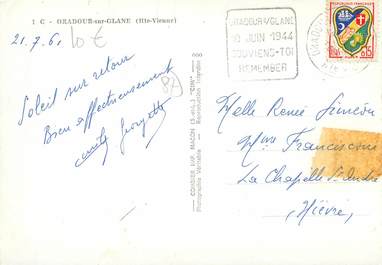 1 C - ORADOUR-sur-GLANE (Hte-Vienne)
21.7.61
10 €
87
Soleil sur retour
Bien affectueusement
Georgette
COMBIER IMP. MACON (S.-et-L.) "CIM"
Photographie Véritable - Reproduction Interdite
ORADOUR S/GLANE
10 JUIN 1944
SOUVIENS-TOI
REMEMBER
REPUBLIQUE FRANÇAISE
0,15
Melle Renée Simeon
La Chapelle St André
Nièvre